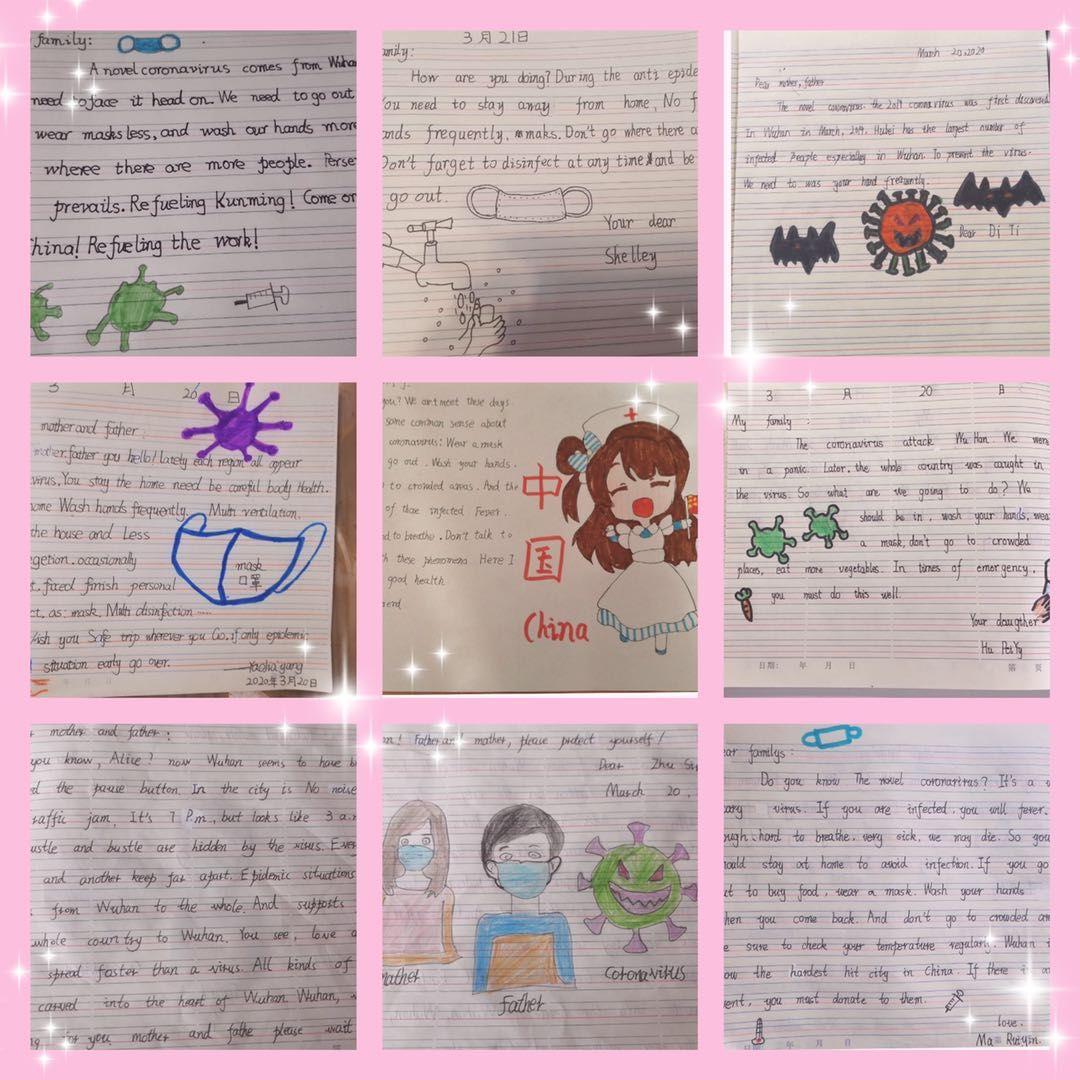 family:
A novel coronavirus comes from Wuha
need to face it head on. We need to go out
wear masks less, and wash our hands more
where there are more people. Perse
prevails. Refueling Kunming! Come on
hina! Refueling the work!
3月21日
mily:
How are you doing? During the anti epide
You need to stay away from home, No f
nds frequently, maks. Don't go where there a
Don't farget to disinfect at any time and be
go out.
Your dear
Shelley
March 20,2020
Dear mother, father
The novel coronavirus. the 2019 corona virus was first discovered
In Wuhan in March, 2019. Hubei has the largest number of
infected People especially in Wuhan. To prevent the virus.
We need to was your hand frequently.
Dear Di Ti
3 月 20 日
mother and father:
mother, father you hello! Lately each region all appear
virus. You stay the home need be careful body Health.
ome Wash hands frequently, Multi ventilation.
the house and Less
getion, occasionally
mask
口罩
t. faced finish personal
ct, as: mask, Multi disinfection ......
Wish you Safe trip wherever you Go, if only epidemic
situation early go over.
2020年3月20日
you? We ain't meet these days
some common sense about
coronavirus: Wear a mask
go out. Wash your hands.
to crowded areas. And the
of thae infected Fever.
nd to breathe. Don't talk to
h these phenomena Here I
good health
end
中
国
China
3 月 20 日
My family:
The coronavirus attack Wu Han. We were
in a panic. Later, the whole country was caught in
the virus. So what are we going to do? We
should be in, wash your hands, wea
a mask, don't go to crowded
places, eat more vegetables. In times of emergency,
you must do this well.
Your daugther
Hu Pei Yg
日期: 年 月 日 第 页
r mother and father:
you know, Alice? now Wuhan seems to have b
d the pause button. In the city is No noise
raffic jam. It's 7 P.m., but looks like 3 a.m
ustle and bustle are hidden by the virus. Ever
and another keep far apart. Epidemic situations
from Wuhan to the whole. And supports
whole country to Wuhan. You see, love a
spread faster than a virus. All kinds of
carved into the heart of Wuhan. Wuhan, w
for you, mother and fathe please wait
an! Father and mather, please protect yourself!
Dear Zhu Su
March 20,
mather
Father
coronavirus
ear familys:
Do you know The novel coronavirus? It's a v
ary virus. If you are infected, you will fever.
ough, hard to breathe. very sick, we may die. So you
ould stay at home to avoid infection. If you go
ut to buy food, wear a mask. Wash your hands
hen you come back. And don't go to crowded are
e sure to check your temperature regularly. Wuhan i
ow the hardest hit city in China. If there is an
ent, you must donate to them.
love.
Ma Ruiyin.
年 月 日